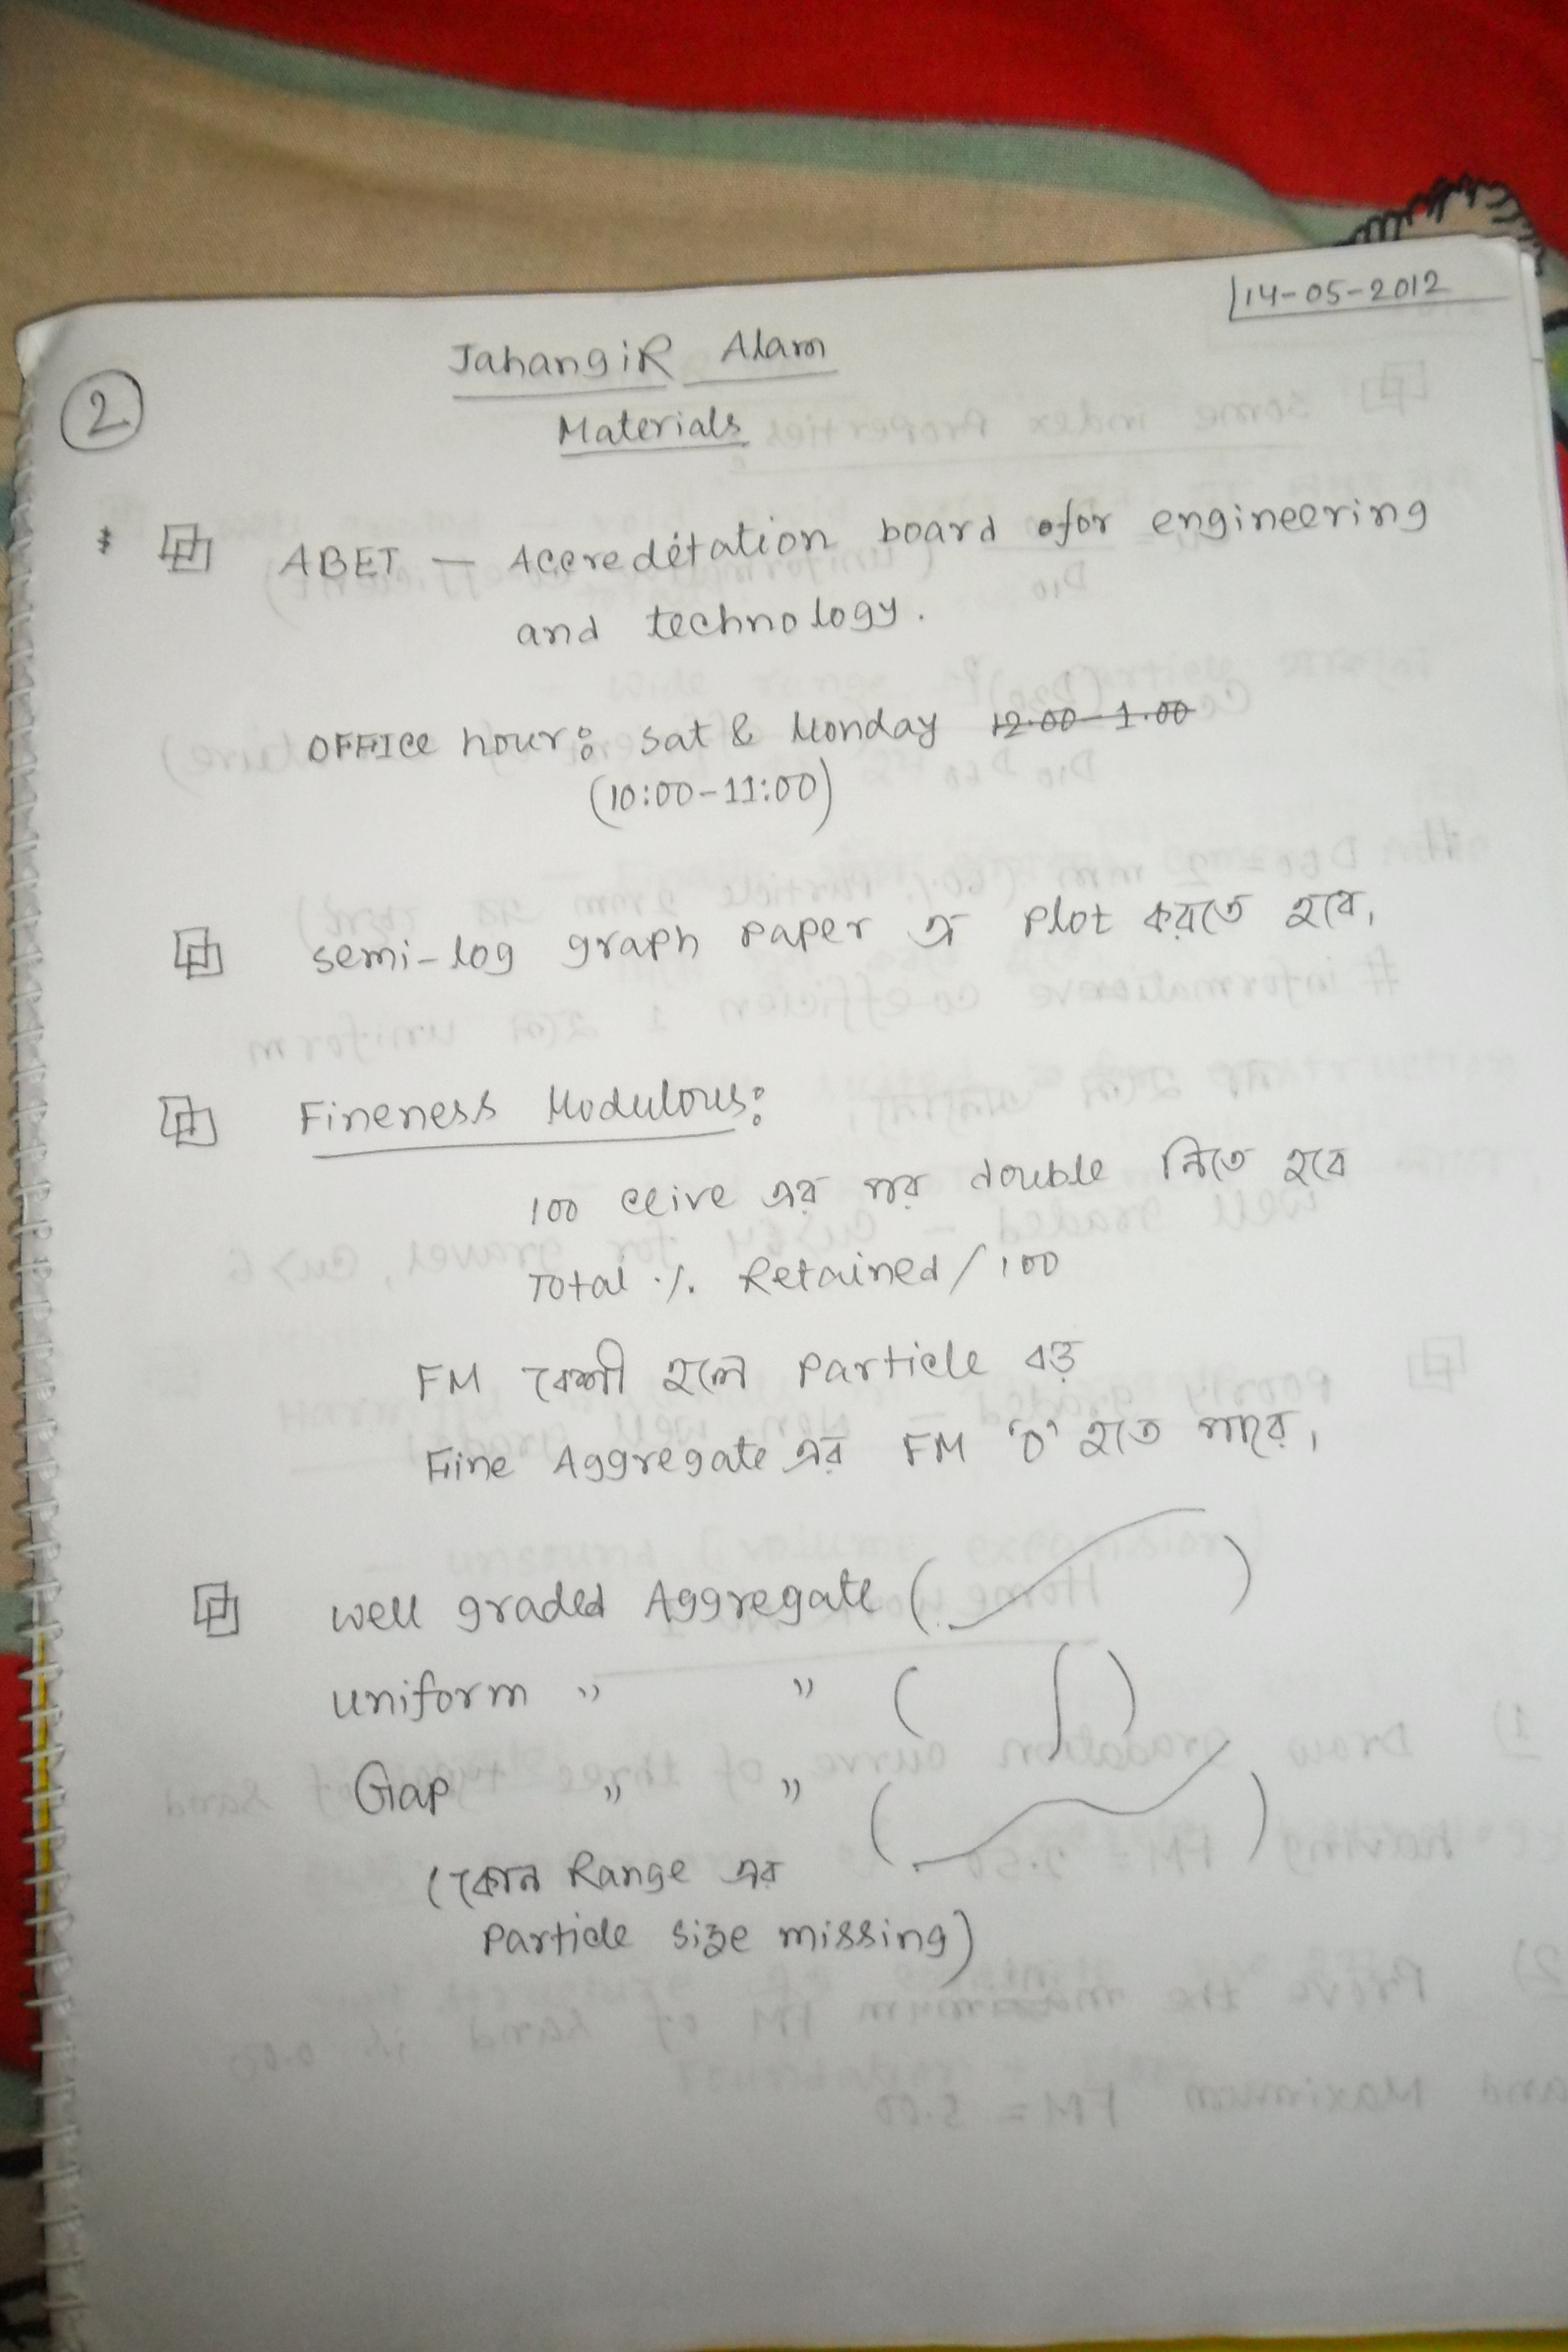 14-05-2012
2
Jahangir Alam
Materials
* ABET — Accreditation board for engineering
and technology.
OFFICE hour: Sat & Monday 12.00-1.00
(10:00-11:00)
semi-log graph paper এ plot করতে হবে।
Fineness Modulous:
100 ceive এর পর double নিতে হবে
Total % Retained/100
FM বেশী হলে particle বড়
Fine Aggregate এর FM '0' হতে পারে।
well graded Aggregate ( )
uniform " " ( )
Gap " " ( )
(কোন Range এর
particle size missing)